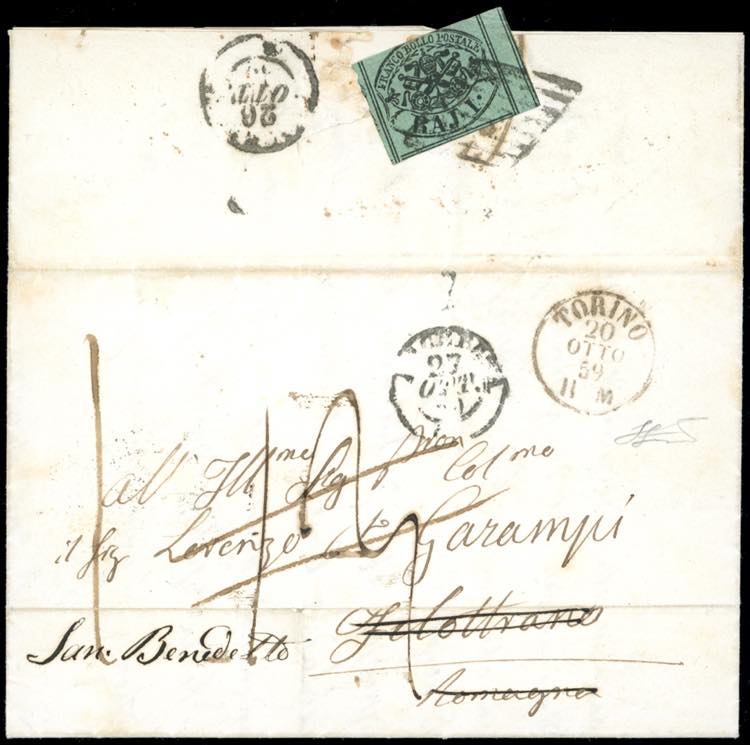 FRANCO BOLLO POSTALE
BAJ. 1.
26
OTT
TORINO
20
OTTO
59
11 M
27
OTT
all' Ill.me Sig Pron Col.mo
il Sig Lorenzo Garampi
San. Benedetto Filottrano
Romagna